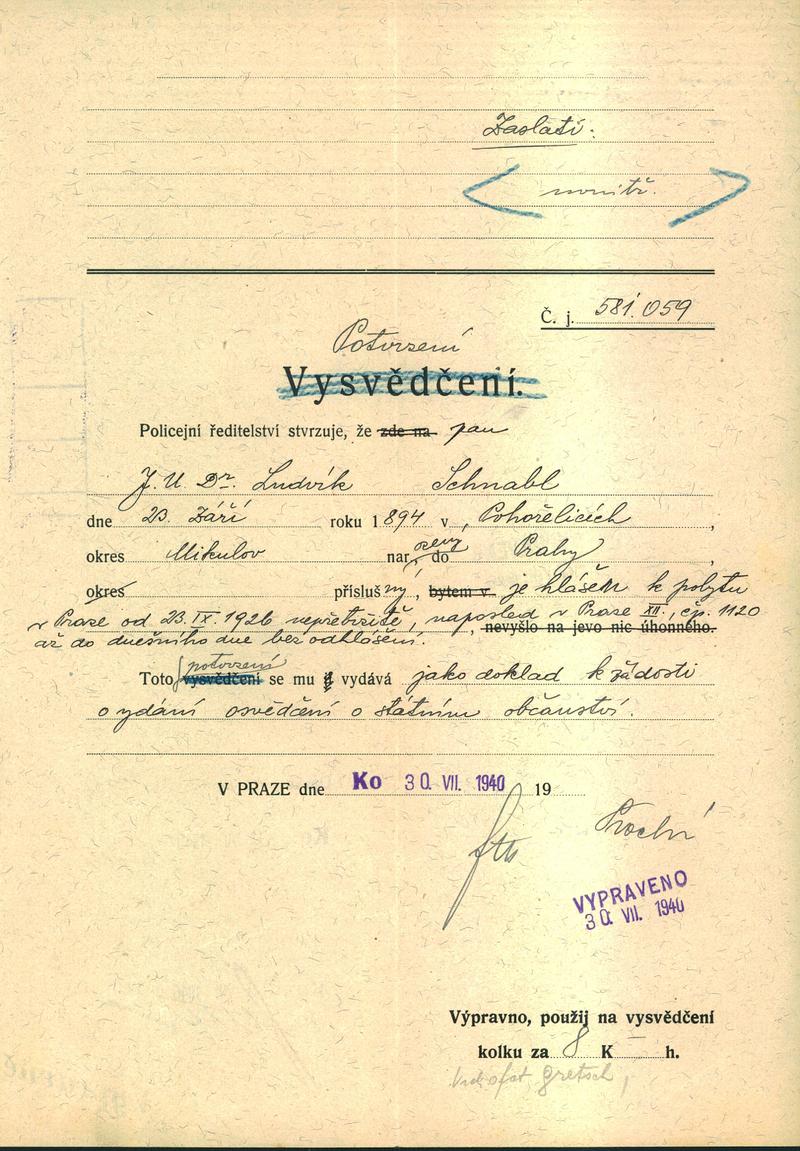 Zaslati:
Č. j. 581.059
Potvrzení
Vysvědčení.
Policejní ředitelství stvrzuje, že zde na pan
J. U. Dr. Ludvík Schnabl
dne 23. Září roku 1894 v Pohořelicích,
okres Mikulov nar. do Prahy
okres přísluš ný, bytem v je hlášen k pobytu
v Praze od 23. IX. 1926 nepřetržitě, naposled v Praze XII., čp. 1120
nevyšlo na jevo nic úhonného.
až do dnešního dne bez odhlášení.
potvrzení
Toto vysvědčení se mu vydává jako doklad k žádosti
o vydání osvědčení o státním občanství.
V PRAZE dne Ko 30. VII. 1940 19
VYPRAVENO
30. VII. 1940
Výpravno, použij na vysvědčení
kolku za 8 K — h.